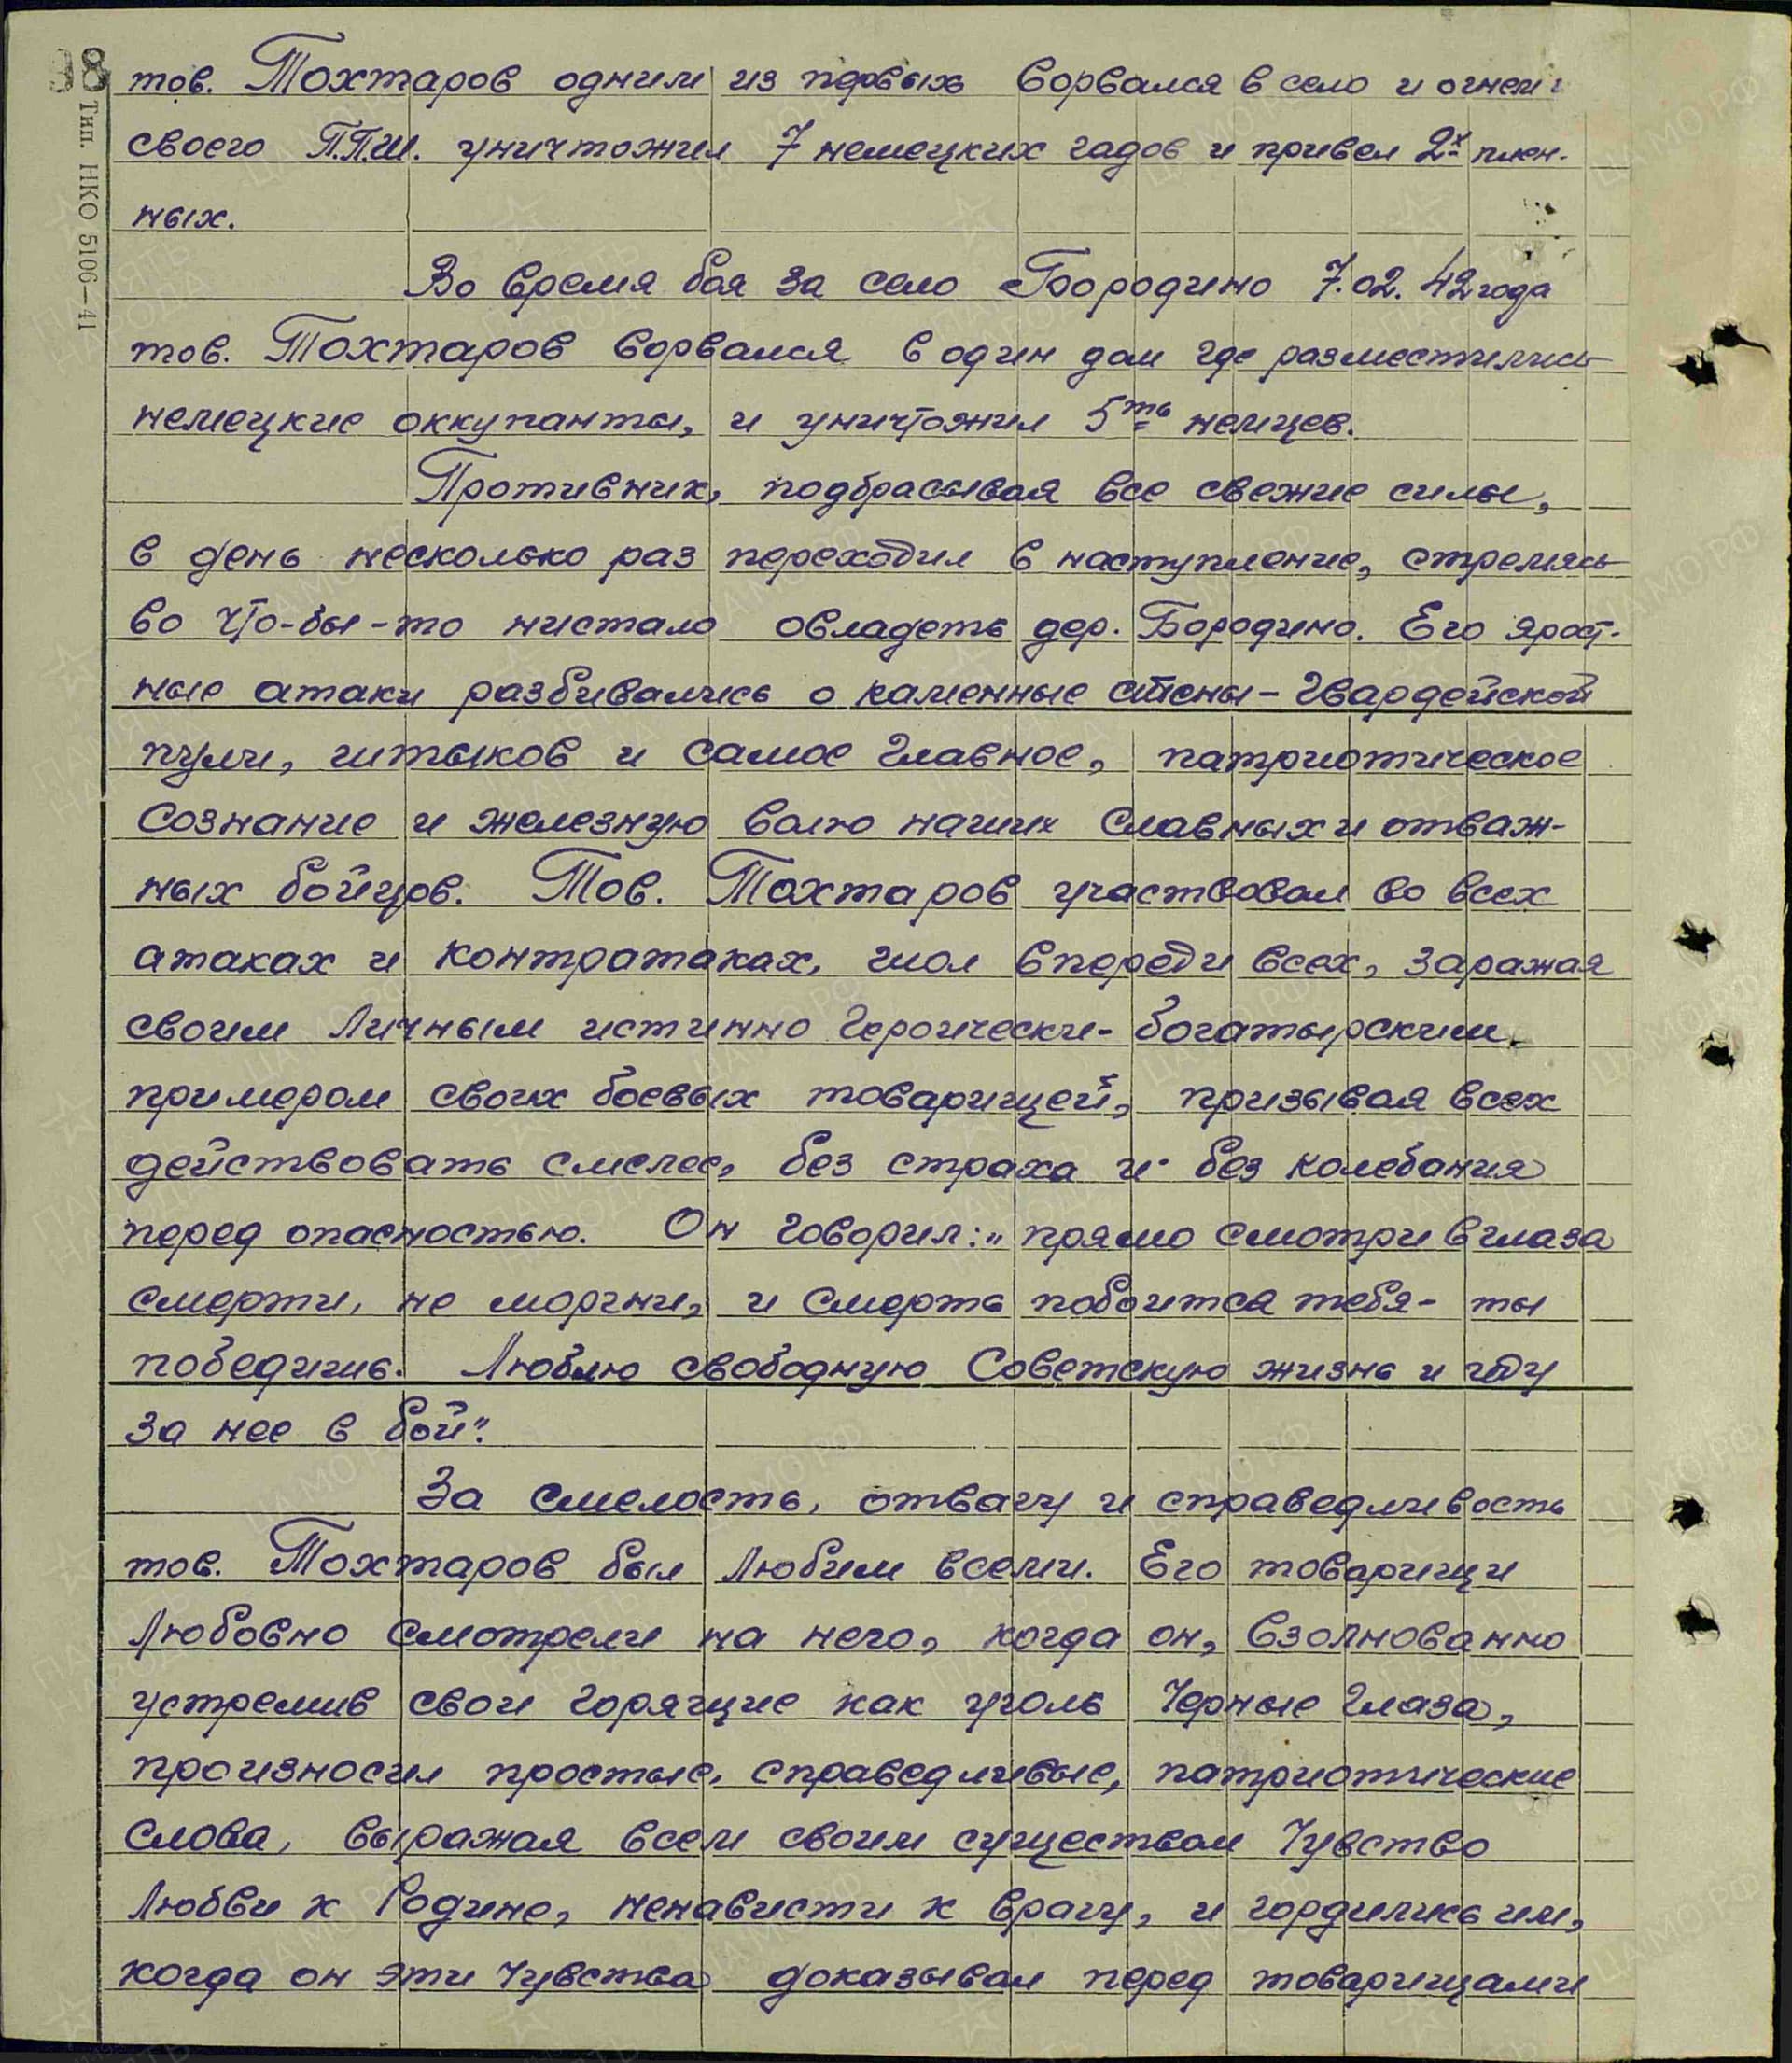 98
Тип. НКО 5106—41
тов. Тохтаров одним из первых ворвался в село и огнем
своего П.П.Ш. уничтожил 7 немецких гадов и привел 2х плен-
ных.
Во время боя за село Бородино 7.02.42 года
тов. Тохтаров ворвался в один дом где разместились
немецкие оккупанты, и уничтожил 5ть немцев.
Противник, подбрасывая все свежие силы,
в день несколько раз переходил в наступление, стремясь
во что-бы-то нистало овладеть дер. Бородино. Его ярост-
ные атаки разбивались о каменные стены - гвардейской
пули, штыков и самое главное, патриотическое
сознание и железную волю наших славных и отваж-
ных бойцов. Тов. Тохтаров участвовал во всех
атаках и контратаках, шол впереди всех, заражая
своим личным истинно героически-богатырским
примером своих боевых товарищей, призывая всех
действовать смелее, без страха и без колебания
перед опасностью. Он говорил: „прямо смотри в глаза
смерти, не моргни, и смерть побоится тебя - ты
победишь. Люблю свободную Советскую жизнь и иду
за нее в бой".
За смелость, отвагу и справедливость
тов. Тохтаров был любим всеми. Его товарищи
любовно смотрели на него, когда он, взолнованно
устремив свои горящие как уголь черные глаза,
произносил простые, справедливые, патриотические
слова, выражая всем своим существом чувство
любви к Родине, ненависти к врагу, и гордились им,
когда он эти чувства доказывал перед товарищами